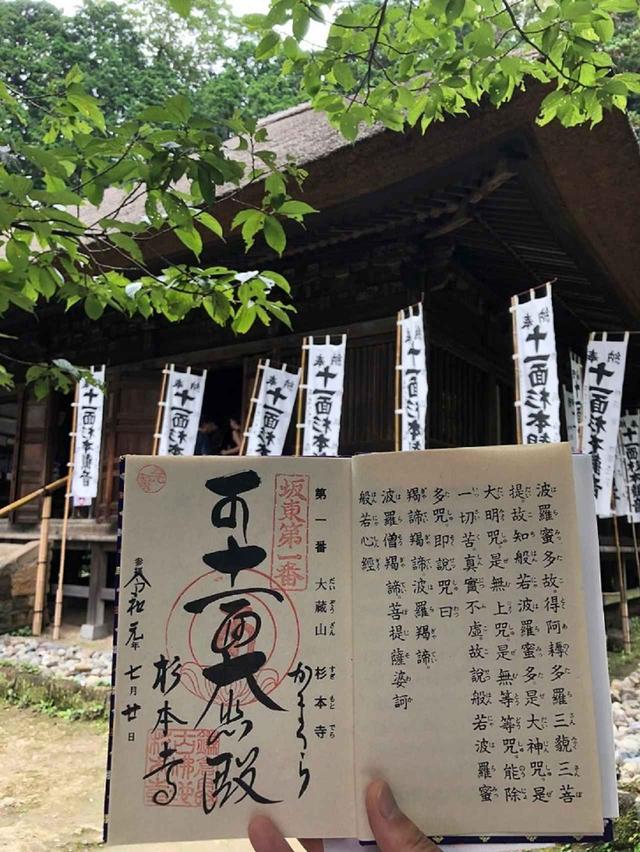 奉納
十一面杉本観音
十一面杉本
十一面杉本
奉納
十一面杉本
十一面杉本
奉納
十一面杉本観
奉納
十一面杉本観音
波羅蜜多故。得阿耨多羅三藐三菩
提故知般若波羅蜜多是大神咒。是
大明咒。是無上咒。是無等等咒。能除
一切苦。真實不虛故說般若波羅蜜
多咒。即說咒曰
羯諦羯諦。波羅羯諦。
波羅僧羯諦。菩提薩婆訶
般若心經
第一番 大蔵山 杉本寺
坂東第一番
かまくら
十一面大悲殿
杉本寺
令和元年七月廿日